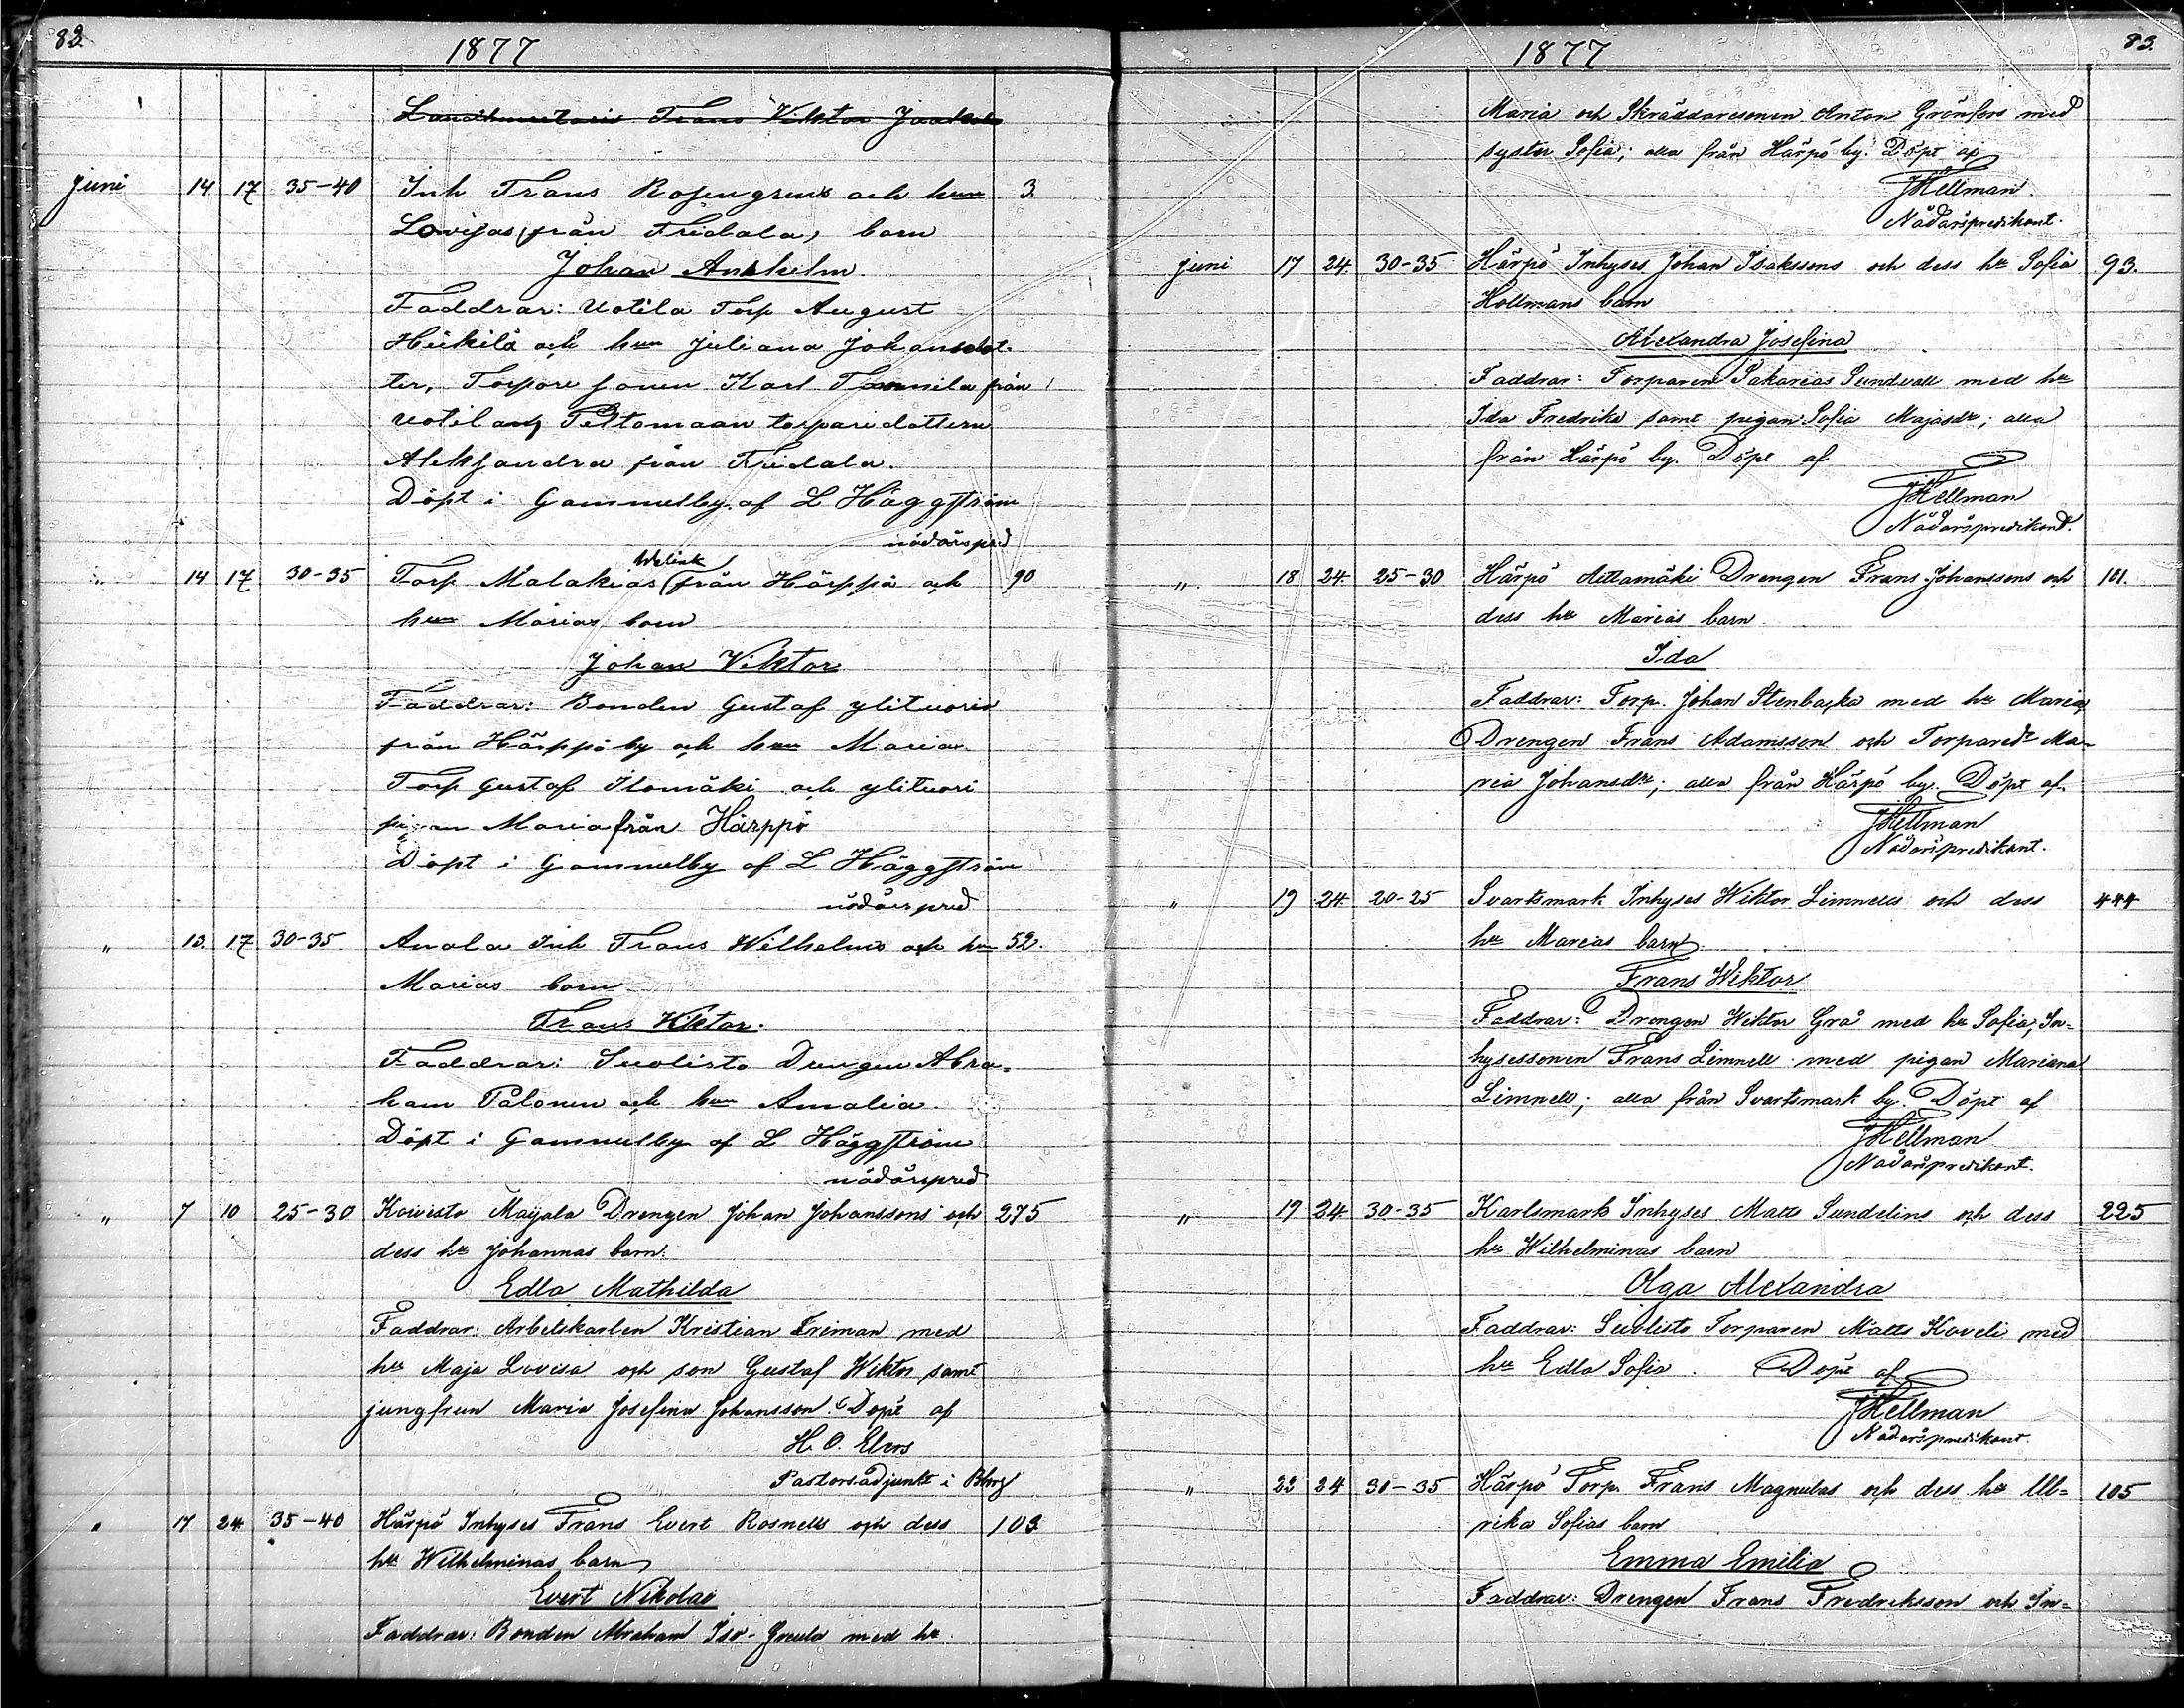 82.
1877
Juni 14 17 35-40 Inh Frans Rosengrens och hun 3.
Lovisas från Fridala, barn
Johan Anshelm.
Faddrar: Uotila Torp August
Heikilä och hun Juliana Johansdot-
ter, Torpare sonen Karl från
Uotila Peltomaan torparedottern
Aleksandra från Fridala.
Döpt i Gammelby af L Häggström
nådårspred
" 14 17 30-35 Torp Malakias från Härppö och 90
hun Marias barn
Johan Viktor
Faddrar: Bonden Gustaf Ylituori
från Härppö by och hun Maria
Torp Gustaf Ilomäki och Ylituori
pigan Maria från Härppö
Döpt i Gammelby af L Häggström
nådårspred
" 13. 17 30-35 Anola Inh Frans Wilhelms och hun 52.
Marias barn
Frans Viktor.
Faddrar: Suolisto Drengen Abra-
ham Palonen och hun Amalia.
Döpt i Gammelby af L Häggström
nådårspred
" 7 10 25-30 Koivisto Maijala Drengen Johan Johanssons och 275
dess hu Johannas barn.
Edla Mathilda
Faddrar: Arbetskarlen Kristian Friman med
hu Maja Lovisa och son Gustaf Wiktor samt
jungfrun Maria Josefina Johansson. Döpt af
H. O. Elers
Pastorsadjunkt i Bbrg
" 17 24 35-40 Härpö Inhyses Frans Evert Rosnells och dess 103
hu Wilhelminas barn
Evert Nikolai
Faddrar: Bonden Abraham Iso- med hu
83.
1877
Maria och Skräddaresonen Anton Grönfors med
syster Sofia; alla från Härpö by. Döpt af
JHellman.
Nådårspredikant.
Juni 17 24. 30-35 Härpö Inhyses Johan Isakssons och dess hu Sofia 93.
Hollmans barn
Alexandra Josefina
Faddrar: Torparen Sakarias Sundvall med hu
Ida Fredrika samt pigan Sofia Majasdr; alla
från Härpö by. Döpt af
JHellman
Nådårspredikant.
" 18 24. 25-30 Härpö Aittamäki Drengen Frans Johanssons och 101.
dess hu Marias barn
Ida
Faddrar: Torp. Johan Stenbacka med hu Maria,
Drengen Frans Adamsson och Torparedr Ma-
ria Johansdr; alla från Härpö by. Döpt af.
JHellman
Nådårspredikant.
" 19 24. 20-25 Svartsmark Inhyses Wiktor Limnells och dess 444
hu Marias barn
Frans Wiktor
Faddrar: Drengen Wiktor Grå med hu Sofia, In-
hysessonen Frans Limnell med pigan Mariana
Limnell; alla från Svartsmark by. Döpt af
JHellman
Nådårspredikant.
" 19 24 30-35 Karlsmark Inhyses Matts Sundelins och dess 225
hu Wilhelminas barn
Olga Alexandra
Faddrar: Suolisto Torparen Matts Koveli med
hu Edla Sofia. Döpt af
JHellman
Nådårspredikant.
" 22 24 30-35 Härpö Torp. Frans Magnulas och dess hu Ul- 105
rika Sofias barn
Emma Emilia
Faddrar: Drengen Frans Fredriksson och In-